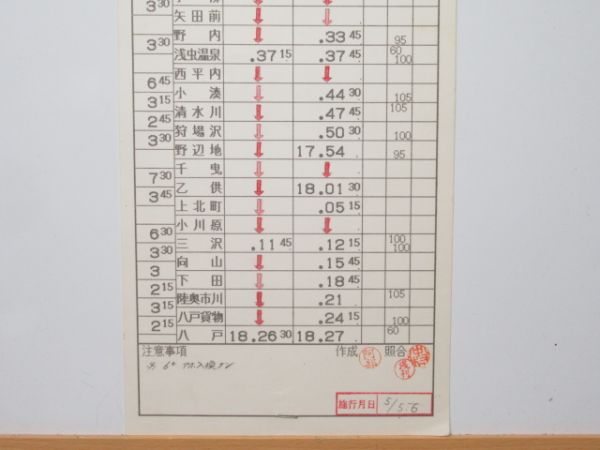 3 30
矢田前 ↓ ↓
野内 ↓ .33 45 95
3 30
浅虫温泉 .37 15 .37 45 60 100
西平内 ↓ ↓
6 45
小湊 ↓ .44 30 105
3 15
清水川 ↓ .47 45 105
2 45
狩場沢 ↓ .50 30 100
3 30
野辺地 ↓ 17.54 95
千曳 ↓ ↓
7 30
乙供 ↓ 18.01 30
3 45
上北町 ↓ .05 15
小川原 ↓ ↓
6 30
三沢 .11 45 .12 15 100 100
3 30
向山 ↓ .15 45
3
下田 ↓ .18 45
2 15
陸奥市川 ↓ .21 105
3 15
八戸貨物 ↓ .24 15 100
2 15
八戸 18.26 30 18.27 60
注意事項 作成 照合
施行月日 5/5.6